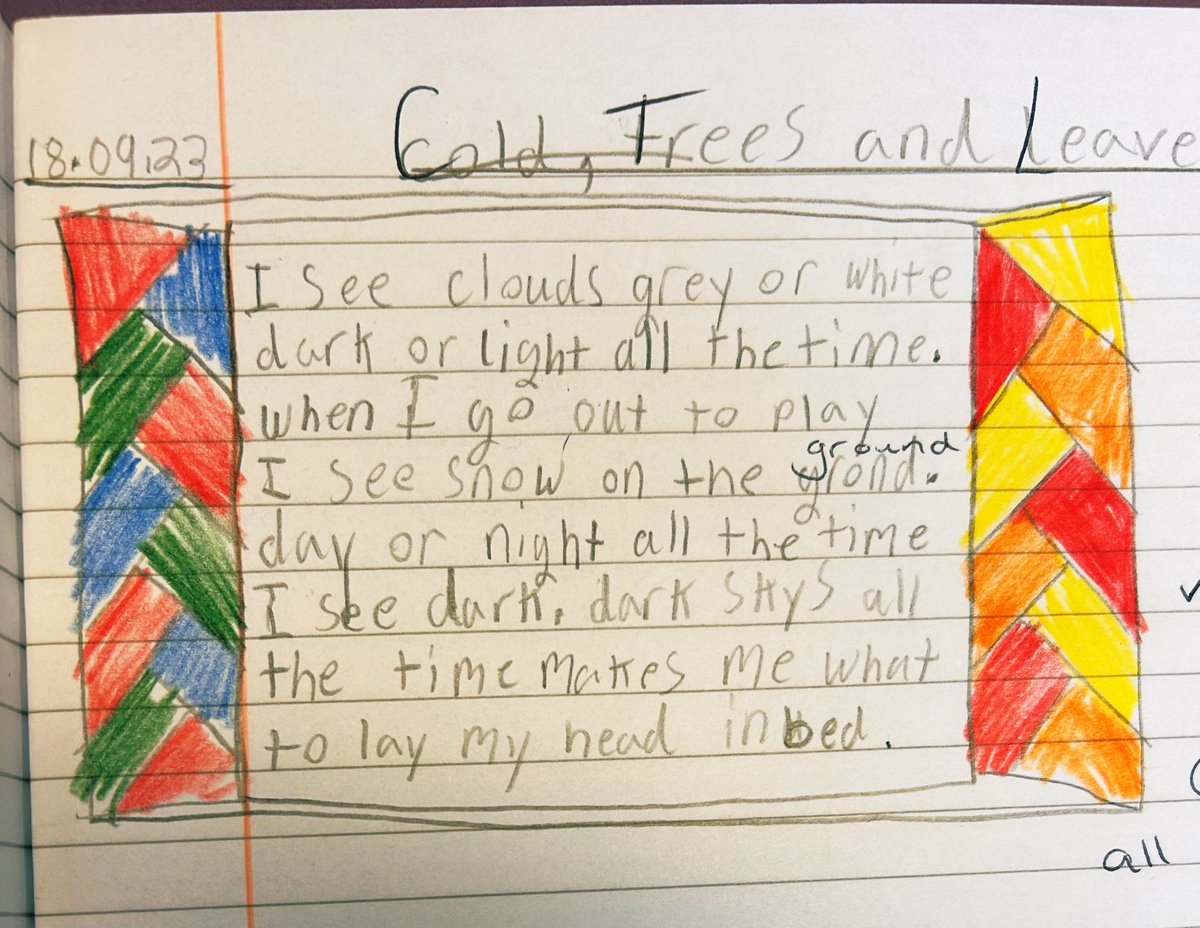 18.09.23
Cold, Trees and Leave
I see clouds grey or white
dark or light all the time.
when I go out to play
ground
I see snow on the grond.
day or night all the time
I see dark, dark skys all
the time makes me what
to lay my head in bed.
all